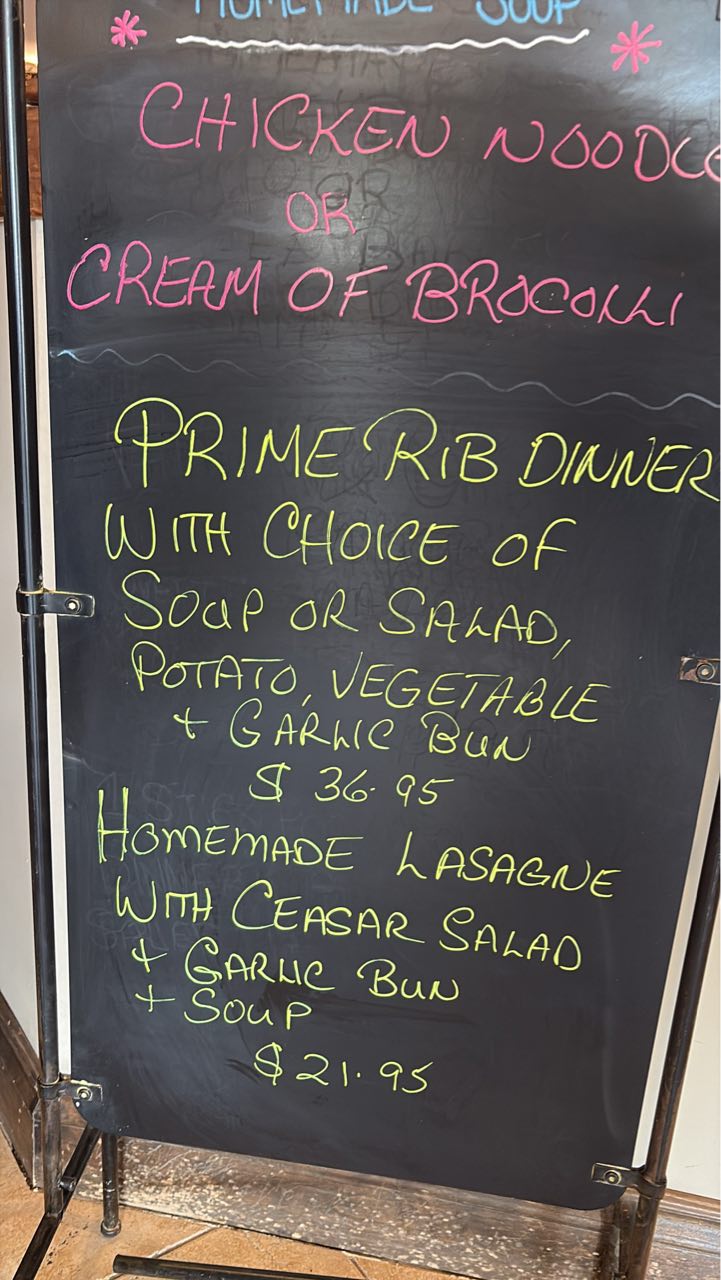 HOMEMADE SOUP
CHICKEN NOODLE
OR
CREAM OF BROCOLLI
PRIME RIB DINNER
WITH CHOICE OF
SOUP OR SALAD,
POTATO, VEGETABLE
+ GARLIC BUN
$ 36.95
HOMEMADE LASAGNE
WITH CEASAR SALAD
+ GARLIC BUN
+ SOUP
$21.95